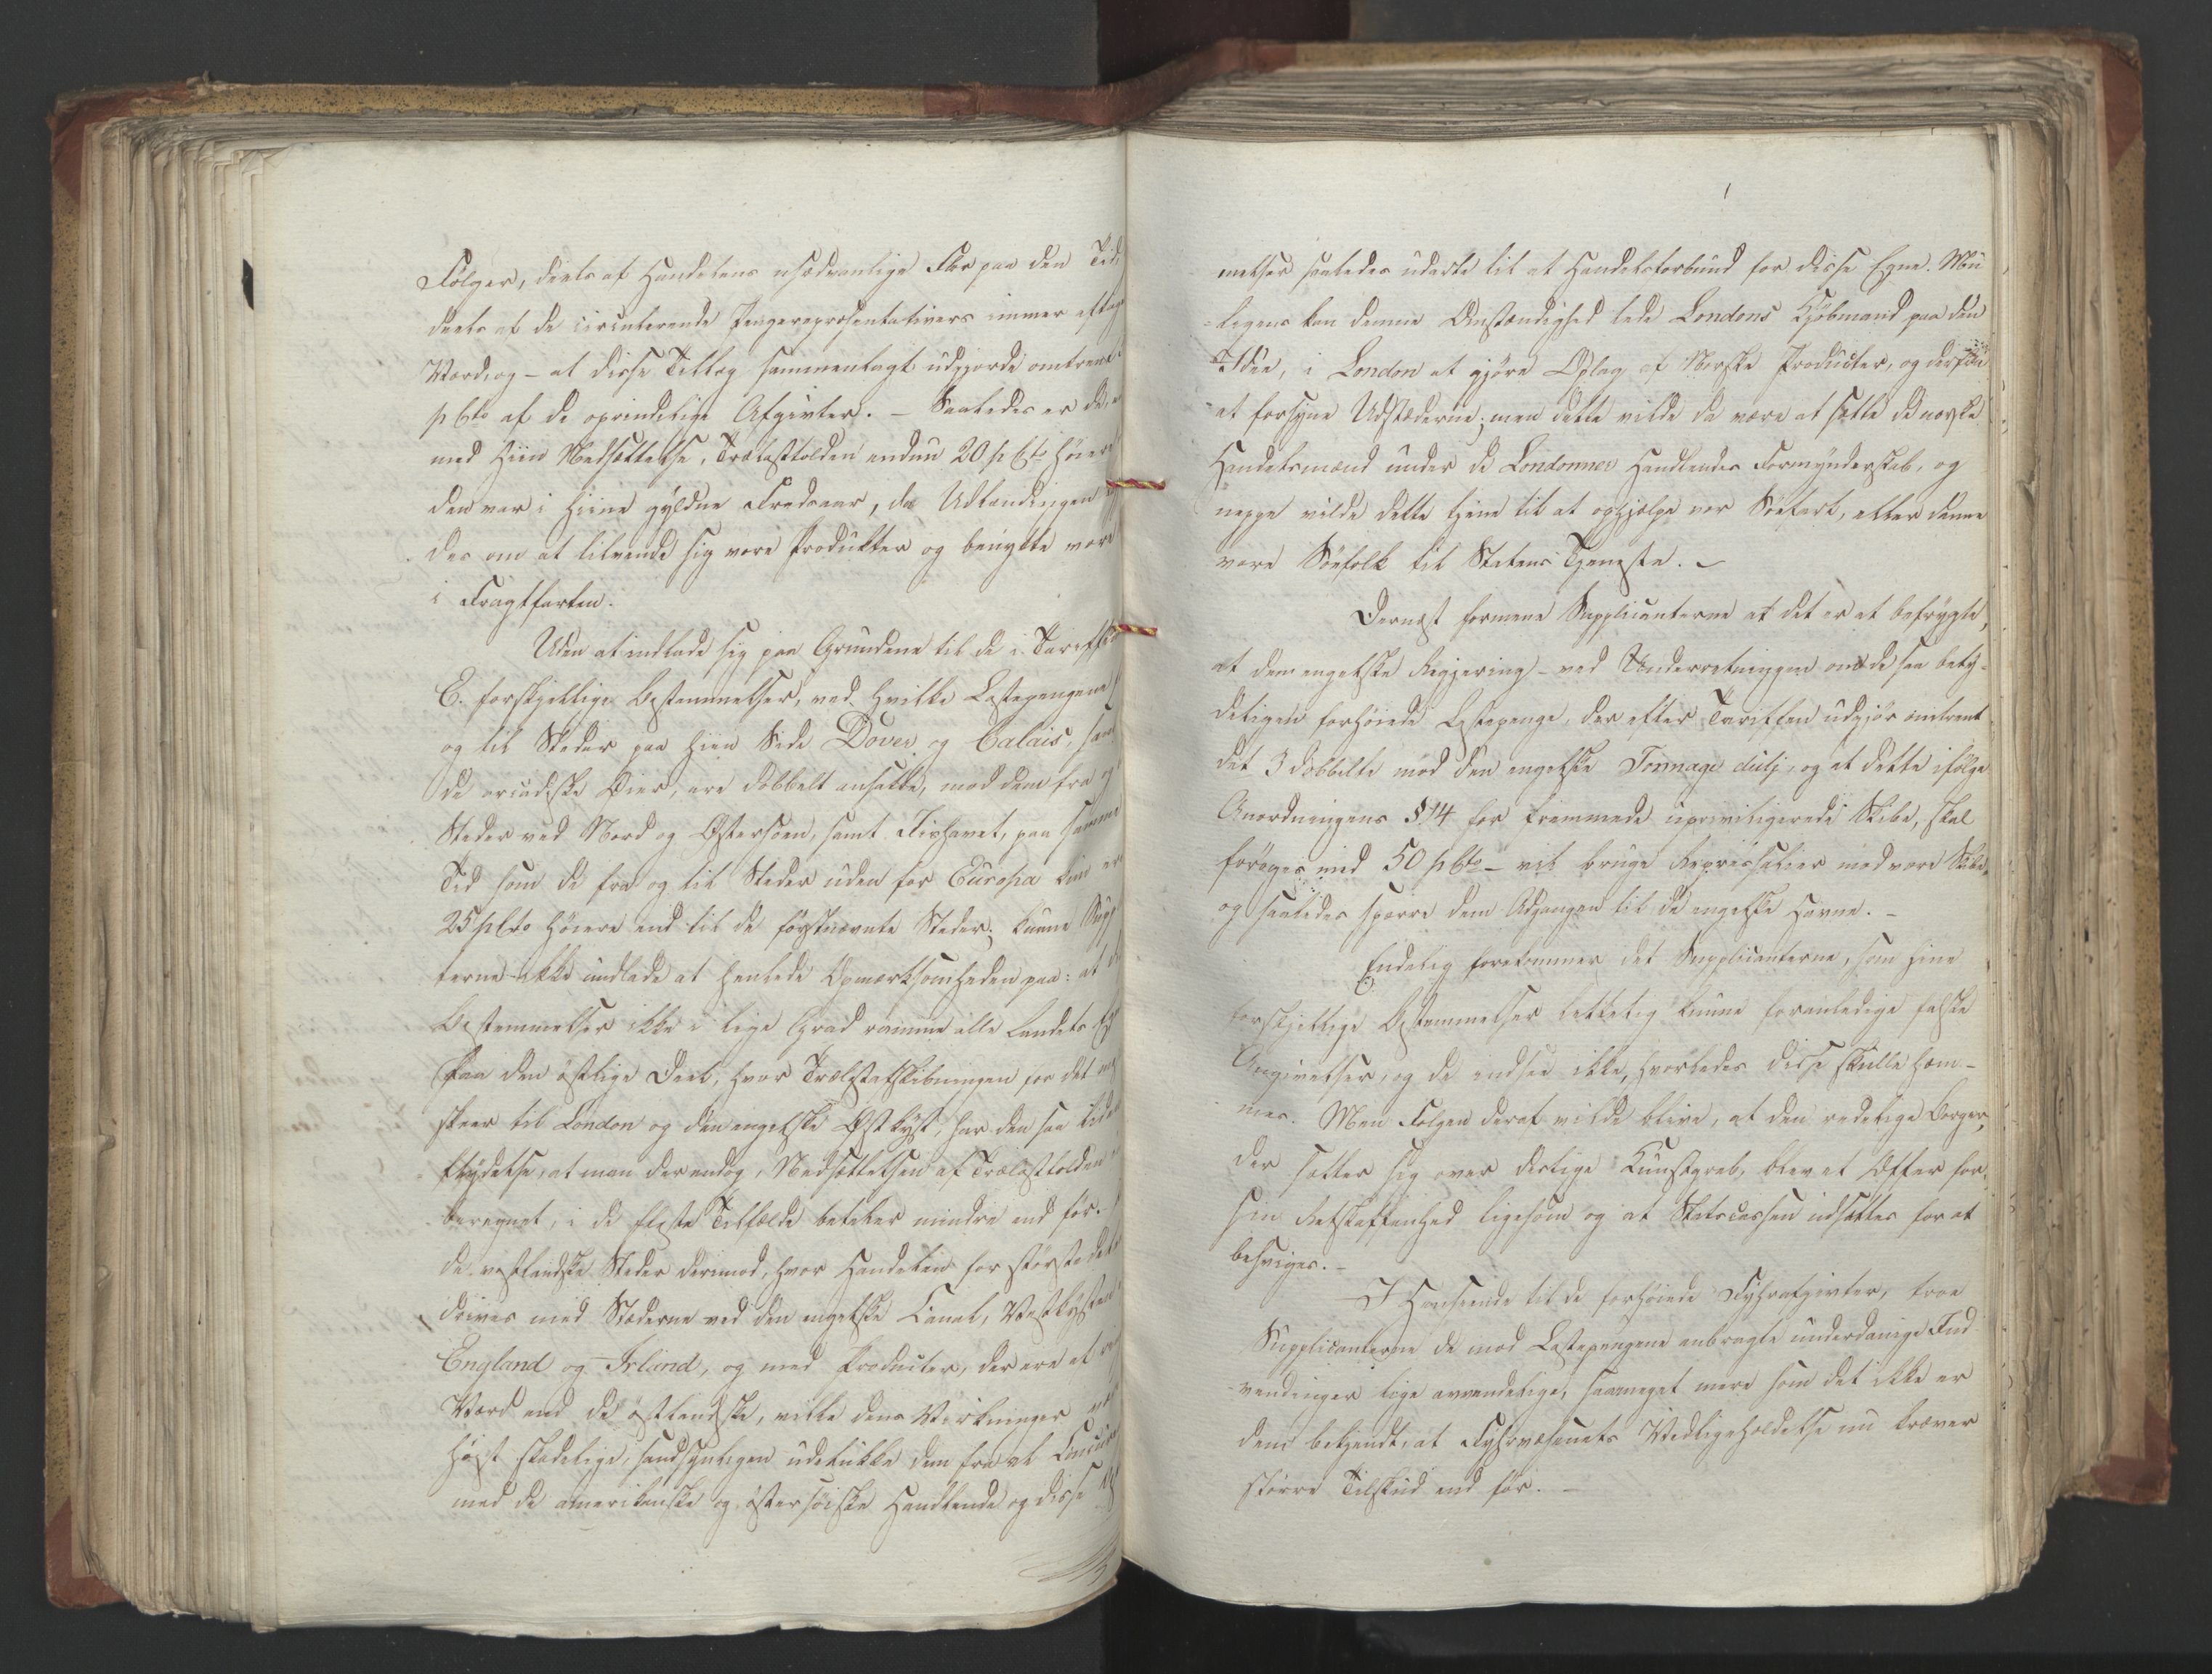 Følger, deels af Handelens usædvanlige Flor paa den Tid,
deels af de circulerende Pengerepræsentativers immer aftag
Værd, og – at disse Tillæg sammenlagt udgjorde omtrent
p Cto af de oprindelige Afgivter. – Saaledes er da,
med hiin Nedsættelse, Trælasttolden endnu 20 p Cto høiere
den var i hiine gyldne Fredsaar, da Udlændingen
des om at tilvende sig vore Produkter og benytte vore
i Fragtfarten.
Uden at indlade sig paa Grundene til de i Tariffen
C. forskjellige Bestemmelser, ved hvilke Lestepengene
og til Steder paa hiin Side Dover og Calais, samt
de orcadiske Øer, ere dobbelt ansatte, mod dem fra og
Steder ved Nord og Østersøen, samt Iishavet, paa samme
Tid som de fra og til Steder uden for Europa kun ere
25 p Cto høiere end til de førstnævnte Steder; kunne Supp
terne ikke undlade at henlede Opmærksomheden paa: at di
Bestemmelser ikke i lige Grad ramme alle Landets Eg
Paa den østlige Deel, hvor Trælastafskibningen for det me
skeer til London og den engelske Østkyst, har den saa liden
flydelse, at man derendog, Nedsættelsen af Trælasttolden
beregnet, i de fleste Tilfælde betaler mindre end før.
de vestlandske Steder derimod, hvor Handelen for største del
drives med Stæderne ved den engelske Canal, Vestkysten
England og Irland, og med Producter, der ere af ri
Værd end de østlandske, ville dens Virkninger
høist skadelige, sandsynligen udelukke dem fra at Concurr
med de amerikanske og østersøiske Handlende og disse
melser saaledes udarte til et Handelsforbund for disse Egne. Mu
ligens kan denne Omstændighed lede Londons Kjøbmænd paa den
Idee, i London at gjøre Oplag af Norske Producter, og derfra
at forsyne Udstæderne; men dette vilde da være at sætte de norske
Handelsmænd under de Londonner Handlendes Formynderskab, og
neppe vilde dette tjene til at ophjælpe vor Søefart, eller danne
vore Søefolk til Statens Tjeneste. –
Dernæst formene Supplicanterne at det er at befrygte,
at den engelske Regjering – ved Underretningen om de saa bety-
deligen forhøiede Lestepenge, der efter Tariffen udgjør omtrent
det 3 dobbelte mod den engelske Tonnage duty, og at dette ifølge
Anordningens § 14 for fremmede upriviligerede Skibe, skal
forøges med 50 p Cto – vil bruge Repressalier mod vore Skibe,
og saaledes spærre dem Adgangen til de engelske Havne. –
Endelig forekommer det Supplicanterne, som hine
forskjellige Bestemmelser letteligt kunne foranledige falske
Angivelser, og de indsee ikke, hvorledes disse skulle hæm-
mes. Men Følgen deraf vilde blive, at den redelige Borger,
der sætter sig over deslige Kunstgreb, blev et Offer for
sin Retskaffenhed ligesom og at Statscassen udsættes for at
besviges. –
I Henseende til de forhøiede Fyhrafgivter, troe
Supplicanterne de mod Lestepengene anbragte underdanige Ind
vendinger lige anvendelige, saameget mere som det ikke er
dem bekjendt, at Fyhrvæsenets Vedligeholdelse nu kræver
større Tilskud end før. –